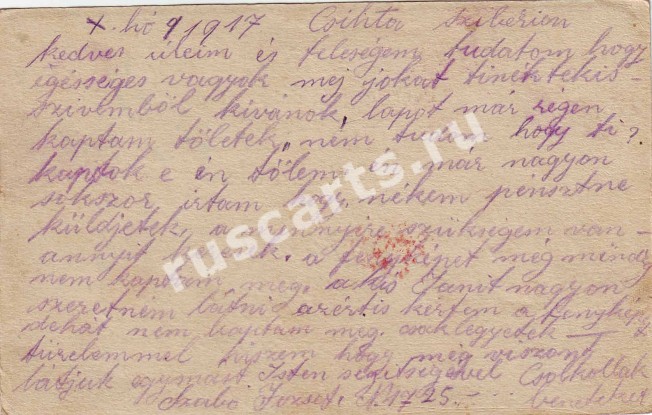 X. hó 9 1917 Csihta sziberien
kedves üleim és feleségem tudatom hogy
egésséges vagyok mej jokat tinéktekis
szivemből kivánok, lapot már régen
kaptam töletek, ném tudom hogy ti
kaptok e én tőlem én már nagyon
sokszor irtam hogy nékem pénsztne
küldjetek, a mennyire szükségem van
annyit a fenyképet még mindig
nem kaptam meg. a kis Janit nagyon
szeretném látni azértis kértem a fenykép
dehát nem kaptam meg. csak legyetek
türelemmel hiszem hogy még viszont
látjuk egymást Isten segitségével Csokollak
Szabó József. 1725 benneteket
ruscarts.ru